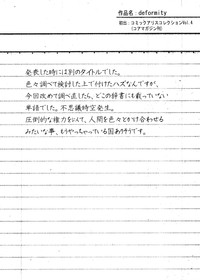 作品名:deformity
初出:コミックアリスコレクションVol.4
(コアマガジン刊)
発表した時には別のタイトルでした。
色々調べて検討した上で付けたハズなんですが、
今回改めて調べ直したら、どこの辞書にも載っていない
単語でした。不思議時空発生。
圧倒的な権力をもって、人間を色々とかけ合わせる
みたいな事、もうやっちゃっている国ありそうです。